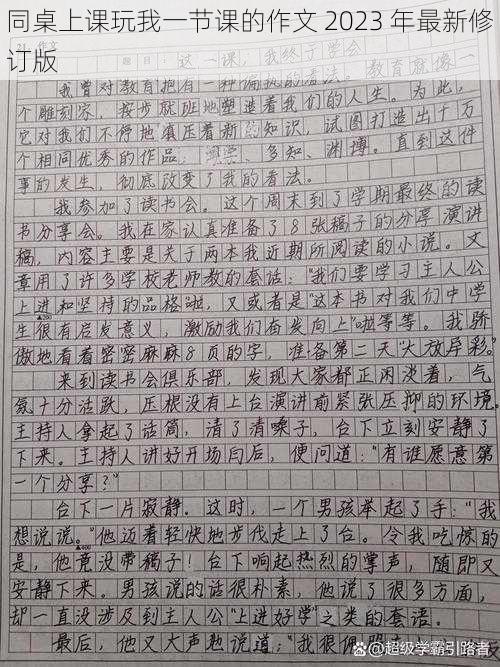 同桌上课玩我一节课的作文 2023 年最新修
订版
21.作文
题目：这一课，我终于学会
我曾对教育抱有一种偏执的看法。教育就像一
个雕刻家，按步就班地塑造着我们的人生。为此，
它对我们不停地填压着新的知识，试图打造出千万
个相同优秀的作品：、多知、渊博。直到这件
事的发生，彻底改变了我的看法。
我参加了读书会。这个周末到了学期最终的读
书分享会。我在家认真准备了8张稿子的分享演讲
稿，内容主要是关于两本我近期所阅读的小说。文
章用了许多学校老师教的套话：“我们要学习主人公
上进和坚持的品格”啦，又或者是“这本书对我们中学
生很有启发意义，激励我们奋发向上”啦等等。我骄
傲地看着密密麻麻8页的字，准备第二天“大放异彩”。
来到读书会俱乐部，发现大家都正闲谈着，气
氛十分活跃，压根没有上台演讲前紧张压抑的环境。
主持人拿起了话筒，清了清嗓子，台下立刻安静了
下来。主持人讲好开场白后，便问道：“有谁愿意第
一个分享？”
台下一片寂静。这时，一个男孩举起了手：“我
想说说。”他迈着轻快地步伐走上了台。令我吃惊的
是，他竟没带稿子！台下响起热烈的掌声，随即又
安静下来。男孩说的话很朴素，他说了很多方面，
却一直没涉及到主人公“上进好学”之类的套语。
最后，他又大声地说道：“我很佩服
超级学霸引路者